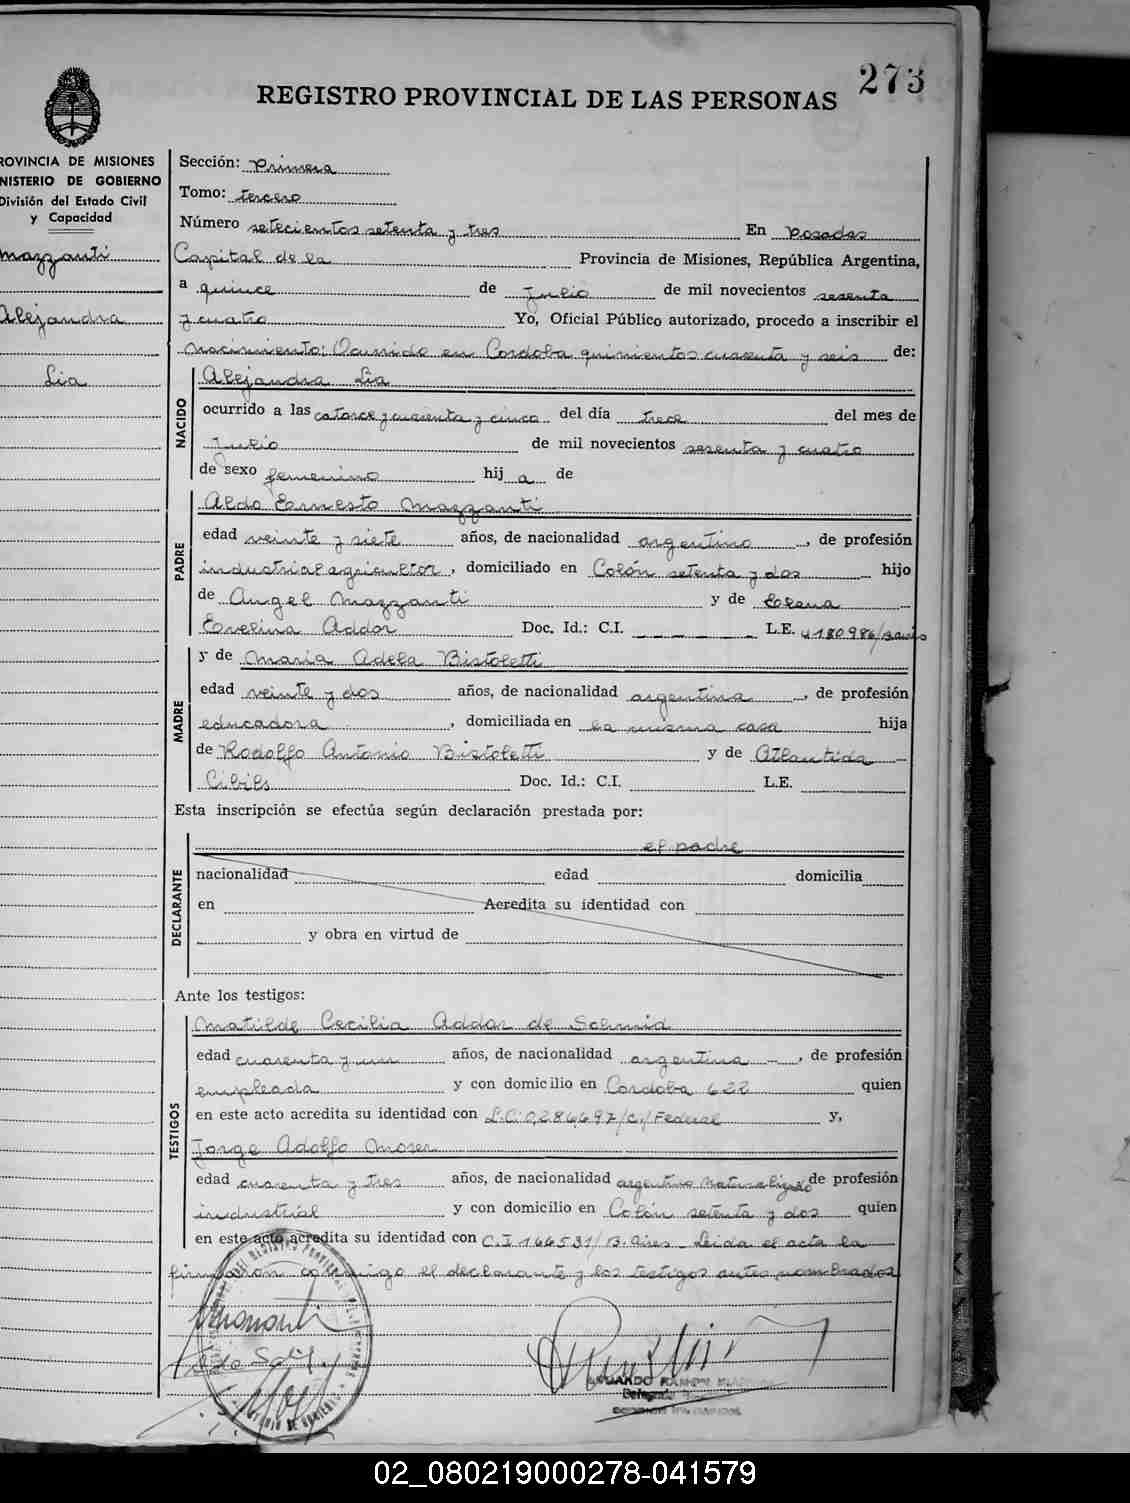 273
REGISTRO PROVINCIAL DE LAS PERSONAS
ROVINCIA DE MISIONES
NISTERIO DE GOBIERNO
División del Estado Civil
y Capacidad
Mazzanti
Alejandra
Lia
Sección: Primera
Tomo: tercero
Número setecientos setenta y tres En Posadas
Capital de la Provincia de Misiones, República Argentina,
a quince de Julio de mil novecientos sesenta
y cuatro Yo, Oficial Público autorizado, procedo a inscribir el
nacimiento: Ocurrido en Cordoba quinientos cuarenta y seis de:
NACIDO
Alejandra Lia
ocurrido a las catorce y cuarenta y cinco del día trece del mes de
Julio de mil novecientos sesenta y cuatro
de sexo femenino hij a de
PADRE
Aldo Ernesto Mazzanti
edad veinte y siete años, de nacionalidad argentino, de profesión
industrial agricultor, domiciliado en Colón setenta y dos hijo
de Angel Mazzanti y de Elena
Evelina Addor Doc. Id.: C.I. L.E.
MADRE
y de Maria Adela Bistoletti
edad veinte y dos años, de nacionalidad argentina, de profesión
educadora, domiciliada en la misma casa hija
de Rodolfo Antonio Bistoletti y de Atlantida
Cibils Doc. Id.: C.I. L.E.
Esta inscripción se efectúa según declaración prestada por:
DECLARANTE
el padre
nacionalidad edad domicilia
en Acredita su identidad con
y obra en virtud de
Ante los testigos:
TESTIGOS
Matilde Cecilia Addor de Schmid
edad cuarenta y un años, de nacionalidad argentina, de profesión
empleada y con domicilio en Cordoba 622 quien
en este acto acredita su identidad con L.C. 0.286.697/C./Federal y,
Jorge Adolfo Moser
edad cuarenta y tres años, de nacionalidad argentino naturalizado de profesión
industrial y con domicilio en Colón setenta y dos quien
en este acto acredita su identidad con C.I. 166531/B. Aires - Leida el acta la
firmaron conmigo el declarante y los testigos antes nombrados
02_080219000278-041579